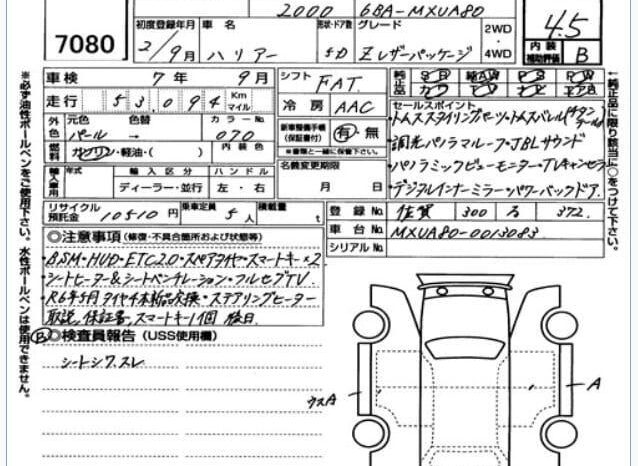 2000 6BA-MXUA80
7080
初度登録年月 車名 形状・ドア数 グレード 2WD・4WD
2/9月 ハリアー 5D Zレザーパッケージ
4.5
内装補助評価 B
車検 7年 9月 シフト FAT
走行 53,094 Km マイル 冷房 AAC
純正 SR AW PS PW
純正 カワ ナビ TV エアB
外色 元色 パール→ 色替 カラーNo 070
燃料 ガソリン・軽油・( ) 内装色
新車整備手帳(保証書付) 有・無
※書類と一緒に保管下さい。
名義変更期限 月 日
輸入車 年式 輸入区分 ディーラー・並行 ハンドル 左・右
セールスポイント
・トムススタイリングパーツ・トムスバレル(チタンテール)
・調光パノラマルーフ・JBLサウンド
・パノラミックビューモニター・TVキャンセラ
・デジタルインナーミラー・パワーバックドア
リサイクル預託金 10510円 乗車定員 5人 積載量 t
登録No 佐賀 300 る 372
車台No MXUA80-0013083
シリアルNo
◎注意事項(修復・不具合箇所および状態等)
・BSM・HUD・ETC2.0・スペアタイヤ・スマートキー×2
・シートヒーター&シートベンチレーション・フルセグTV
・R6年9月タイヤ4本新品交換・ステアリングヒーター
取説、保証書、スマートキー1個 後日
B ◎検査員報告(USS使用欄)
シートシワ.スレ
ウスA
A
※必ず油性ボールペンをご使用下さい。水性ボールペンは使用できません。
↑純正品に限り該当に○をつけて下さい。